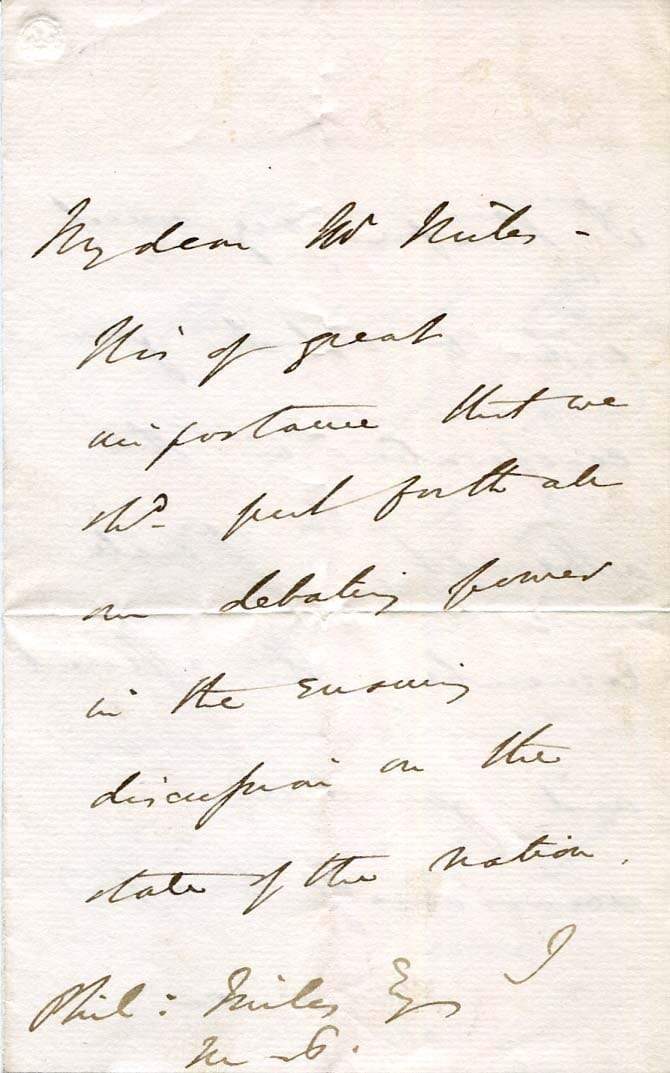 My dear Mr Miles -
It is of great
importance that we
shd. put forth all
our debating power
in the ensuing
discussion on the
state of the nation.
I
Phil: Miles Esq
M.P.